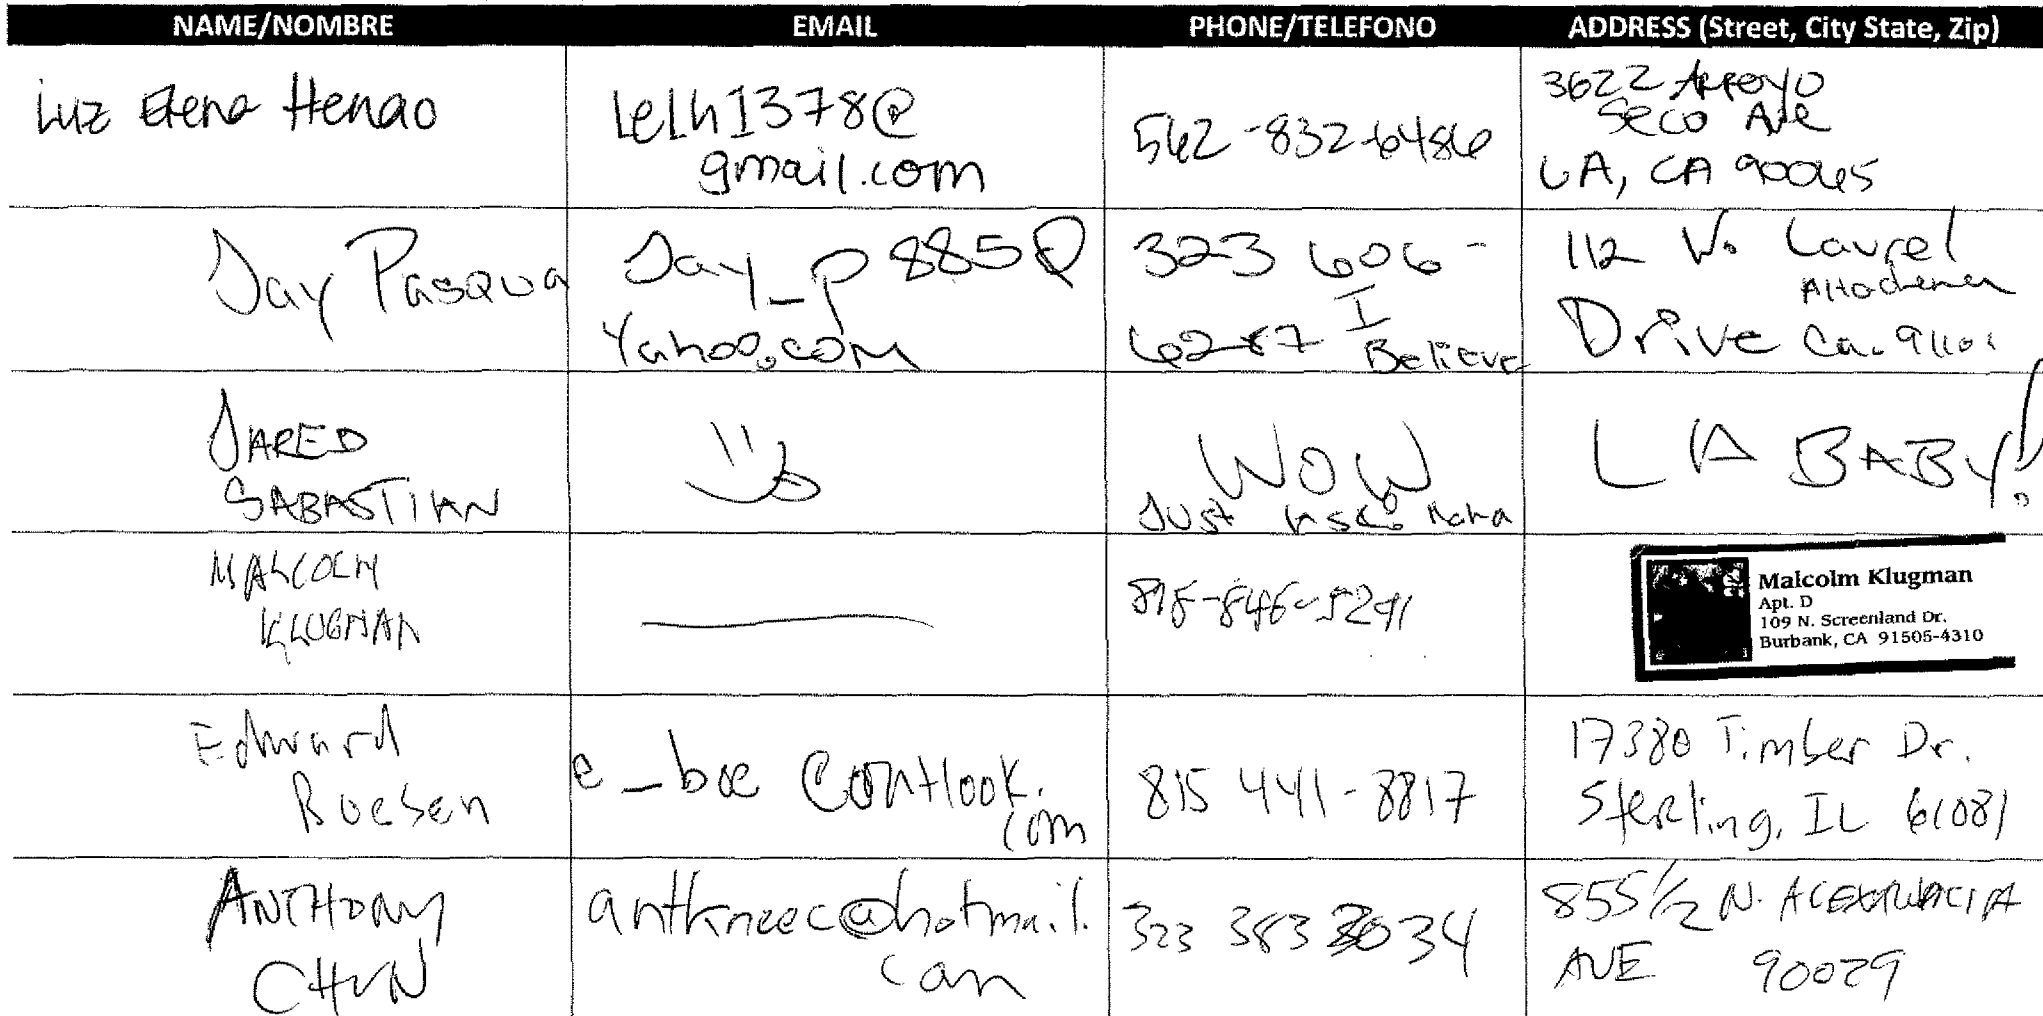 NAME/NOMBRE EMAIL PHONE/TELEFONO ADDRESS (Street, City State, Zip)
Luz Elena Henao
lelh1378@
gmail.com
562-832-6486
3622 Arroyo
Seco Ave
LA, CA 90065
Jay Pasqua
Jay_p885@
Yahoo.com
323 606-
6287 I
Believe
112 W. Laurel
Altadena
Drive Ca. 91101
JARED
SABASTIAN
WOW
Just
LA BABY!
MALCOLM
KLUGMAN
818-846-5291
Malcolm Klugman
Apt. D
109 N. Screenland Dr.
Burbank, CA 91505-4310
Edward
Boesen
e_boe@outlook.
com
815 441-8817
17380 Timber Dr.
Sterling, IL 61081
ANTHONY
CHUN
anthneec@hotmail.
com
323 383 3034
855 1/2 N. ALEXANDRIA
AVE 90029